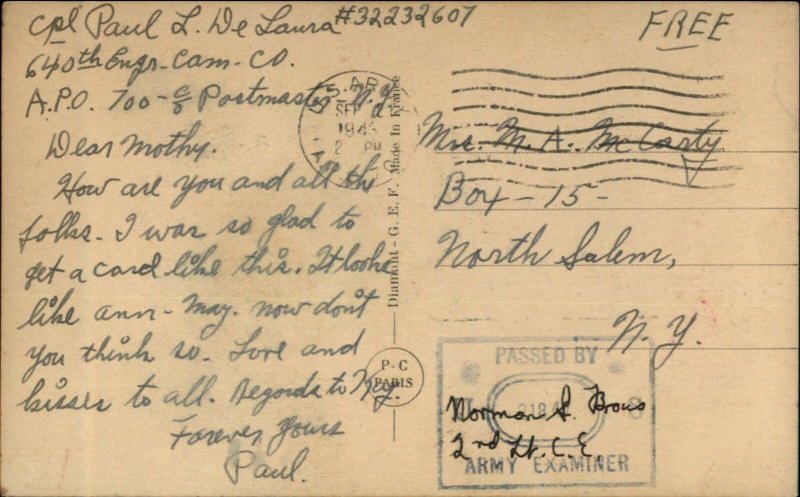 Cpl Paul L. De Laura #32232607
640th Engr. Cam. Co.
A.P.O. 700 - c/o Postmaster N.Y.
Dear Mothy.
How are you and all the
folks. I was so glad to
get a card like this. It looks
like ann-May. now don't
you think so. Love and
kisses to all. Regards to
Forever yours
Paul.
FREE
U.S. AR
SEP
PM
Diamant - G. E. F. Made In France
P-C
PARIS
Mrs. M. A. McCarty
Box - 15 -
North Salem,
N.Y.
PASSED BY
Norman S.
2nd Lt. C.E.
ARMY EXAMINER